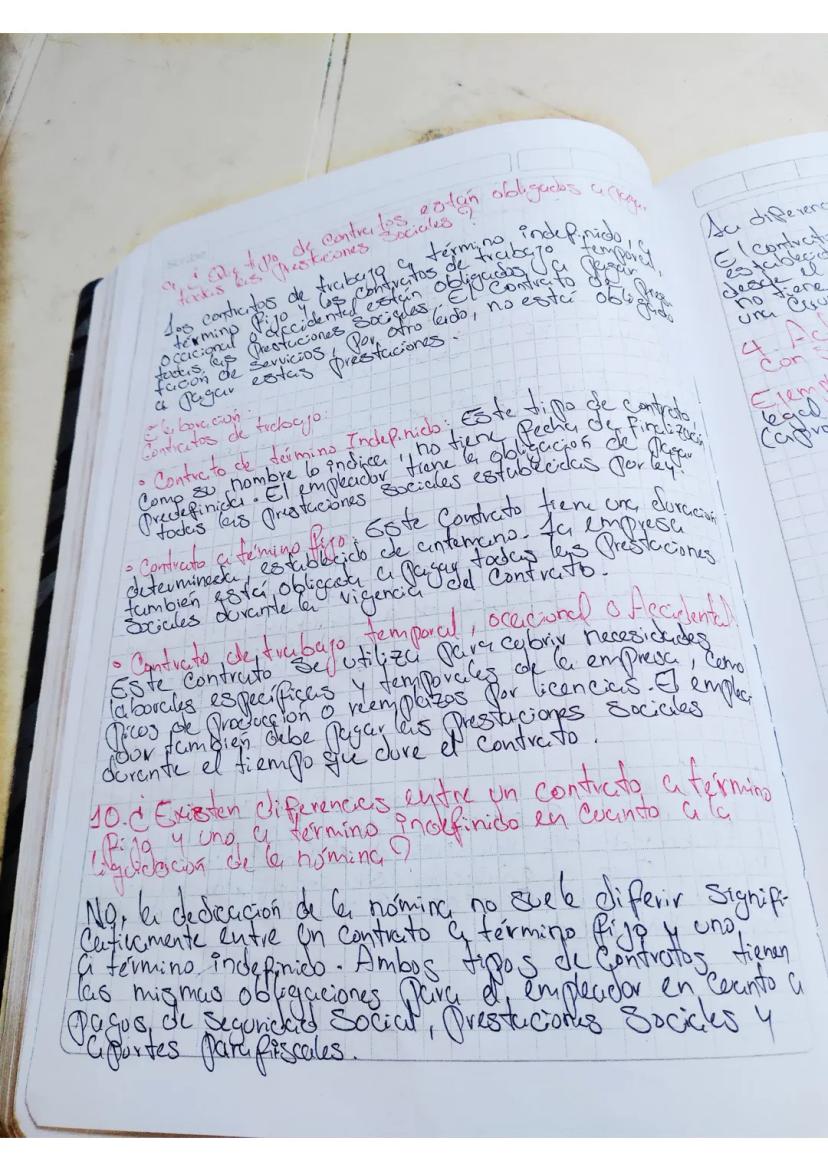 9. ¿Que tipo de contratos están obligados a pagar
todas las prestaciones Sociales?
Los contratos de trabajo a término indefinido, a
término fijo y los contratos de trabajo temporal,
ocacional o accidental están obligados a pagar
todas las prestaciones Sociales. El contrato de Pres-
tación de servicios, por otro lado, no está obligado
a pagar estas prestaciones.
Elaboración:
Contratos de trabajo:
• Contrato de término Indefinido: Este tipo de contrato,
como su nombre lo indica, no tiene fecha de finalización
Predefinida. El empleador tiene la obligación de pagar
todas las prestaciones sociales establecidas por ley.
• Contrato a término fijo: Este Contrato tiene una duración
determinada, establecido de antemano. La empresa
también está obligada a pagar todas las Prestaciones
Sociales durante la vigencia del Contrato.
• Contrato de trabajo temporal, ocacional o Accidental
Este Contrato se utiliza para cubrir necesidades
laborales específicas y temporales de la empresa, como
picos de producción o reemplazos por licencias. El emplea
dor también debe pagar las prestaciones Sociales
durante el tiempo que dure el contrato.
10. ¿Existen diferencias entre un contrato a término
fijo y uno a término indefinido en cuanto a la
liquidación de la nómina?
No, la dedicación de la nómina no suele diferir Signifi-
cativamente entre un contrato a término fijo y uno
a término indefinido. Ambos tipos de Contratos tienen
las mismas obligaciones para el empleador en cuanto a
pagos de seguridad Social, prestaciones Sociales y
aportes parafiscales.
La diferenc
El contrato
establecid
desde el
no tiene
una
4.
con
Ejemp
legal